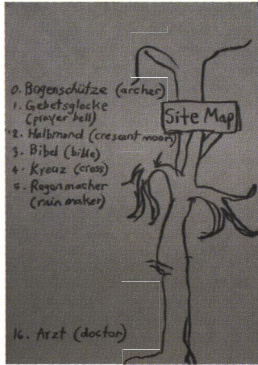 0. Bogenschütze (archer)
1. Gebetsglocke
(prayer bell)
2. Halbmond (crescent moon)
3. Bibel (bible)
4. Kreuz (cross)
5. Regenmacher
(rain maker)
16. Arzt (doctor)
Site Map